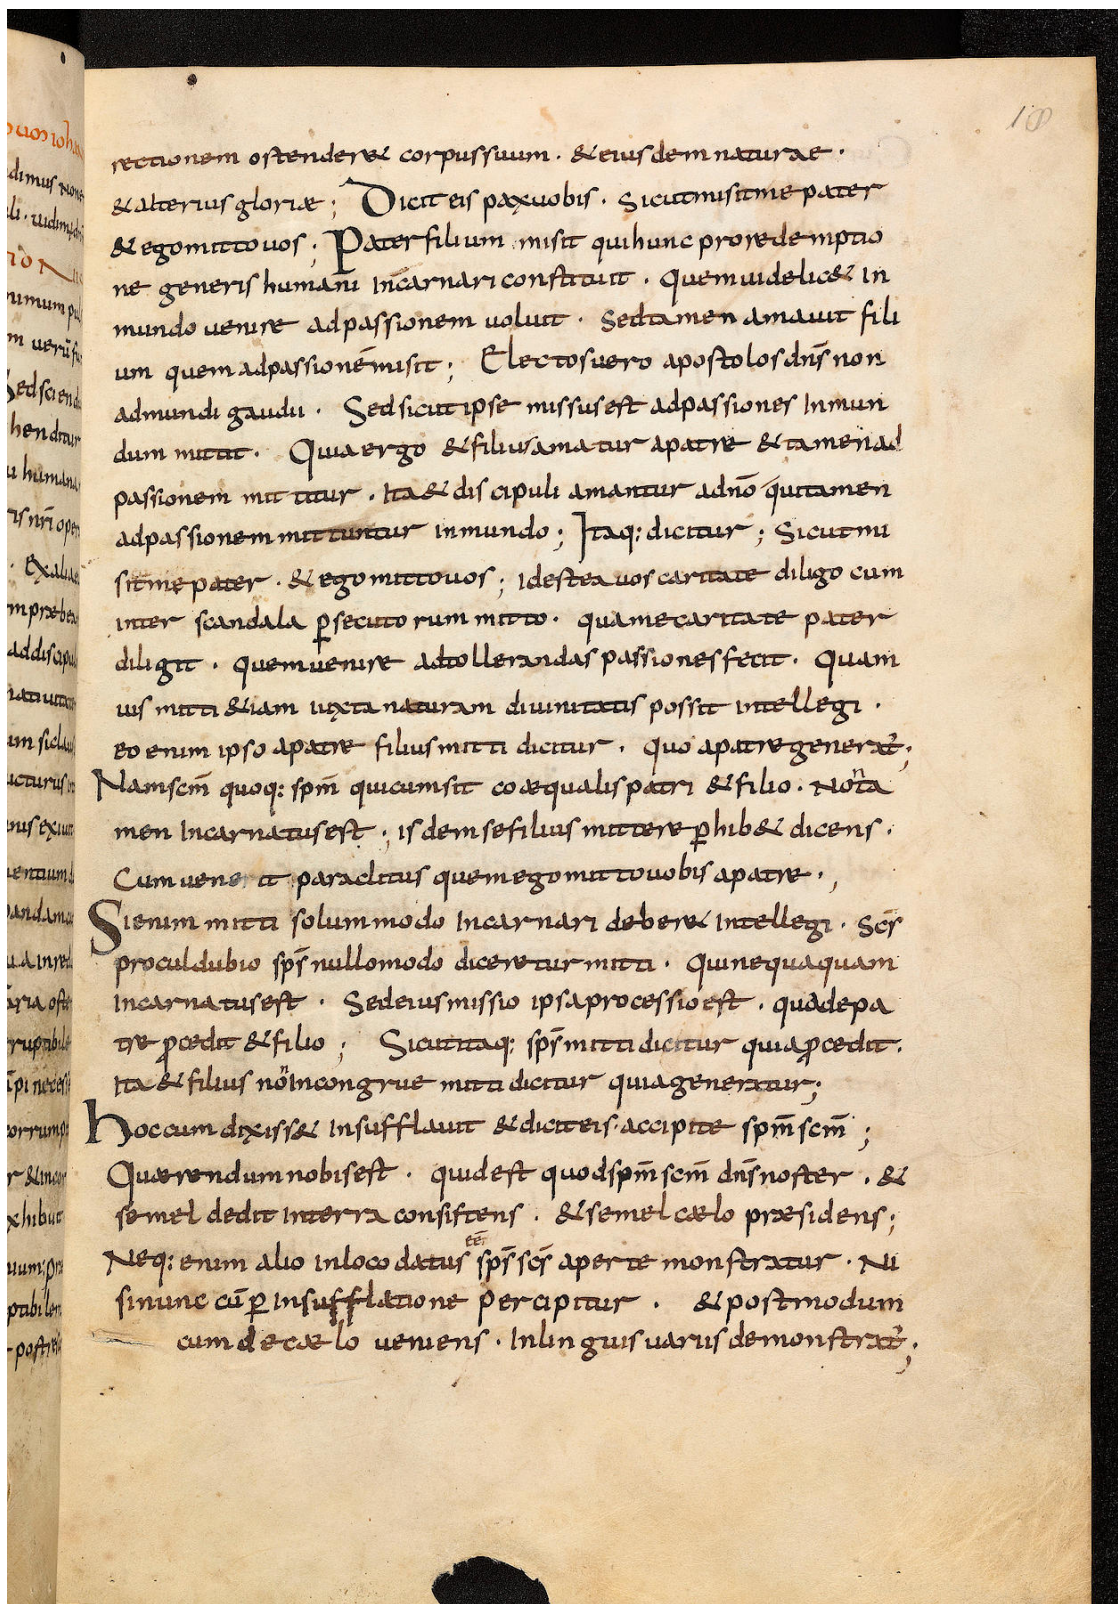 18
rectionem ostenderet corpussuum. & eiusdem naturae.
& alterius gloriæ; Dicit eis pax uobis. Sicut misit me pater
& ego mitto uos; Pater filium misit qui hunc pro redemptio
ne generis humani Incarnari constituit. Quem uidelic& In
mundo uenire ad passionem uoluit. Sed tamen amauit fili
um quem ad passionē misit; Electos uero apostolos dn̄s non
ad mundi gaudii. Sed sicut ipse missus est ad passiones In mun
dum mittit. Quia ergo & filius amatur a patre & tamen ad
passionem mittitur. Ita & discipuli amantur a dnō qui tamen
ad passionem mittuntur in mundo; Itaq: dicitur; Sicut mi
sit me pater. & ego mitto uos; id est ea uos caritate diligo cum
inter scandala p̱secutorum mitto. qua me caritate pater
diligit. Quem uenire ad tollerandas passiones fecit. Quam
uis mitti &iam iuxta naturam diuinitatis possit intellegi.
eo enim ipso a patre filius mitti dicitur. quo a patre generat̃;
Nam scm̄ quoq: spm̄ qui cum sit coæqualis patri & filio. Nonta
men Incarnatus est; isdem se filius mittere p̱hib& dicens.
Cum uenerit paraclitus quem ego mitto uobis a patre.,
Si enim mitti solummodo Incarnari deberet Intellegi. Scs̄
procul dubio sps̄ nullo modo diceretur mitti. Qui nequaquam
Incarnatus est. Sed eius missio ipsa processio est. qua de pa
tre p̱cedit & filio; Sicut itaq: sps̄ mitti dicitur quia p̱cedit.
Ita & filius nō Incongrue mitti dicitur quia generatur;
Hoc cum dixiss& Insufflauit & dicit eis. accipite spm̄ scm̄;
Quærendum nobis est. quid est quod spm̄ scm̄ dn̄s noster. &
semel dedit In terra consistens. & semel cælo præsidens;
Neq: enim alio in loco datus ee͞ sps̄ scs̄ aperte monstratur. Ni
si nunc cū p̱ Insufflationē percipitur. & postmodum
cum de cælo ueniens. In linguis uariis demonstrat̃;